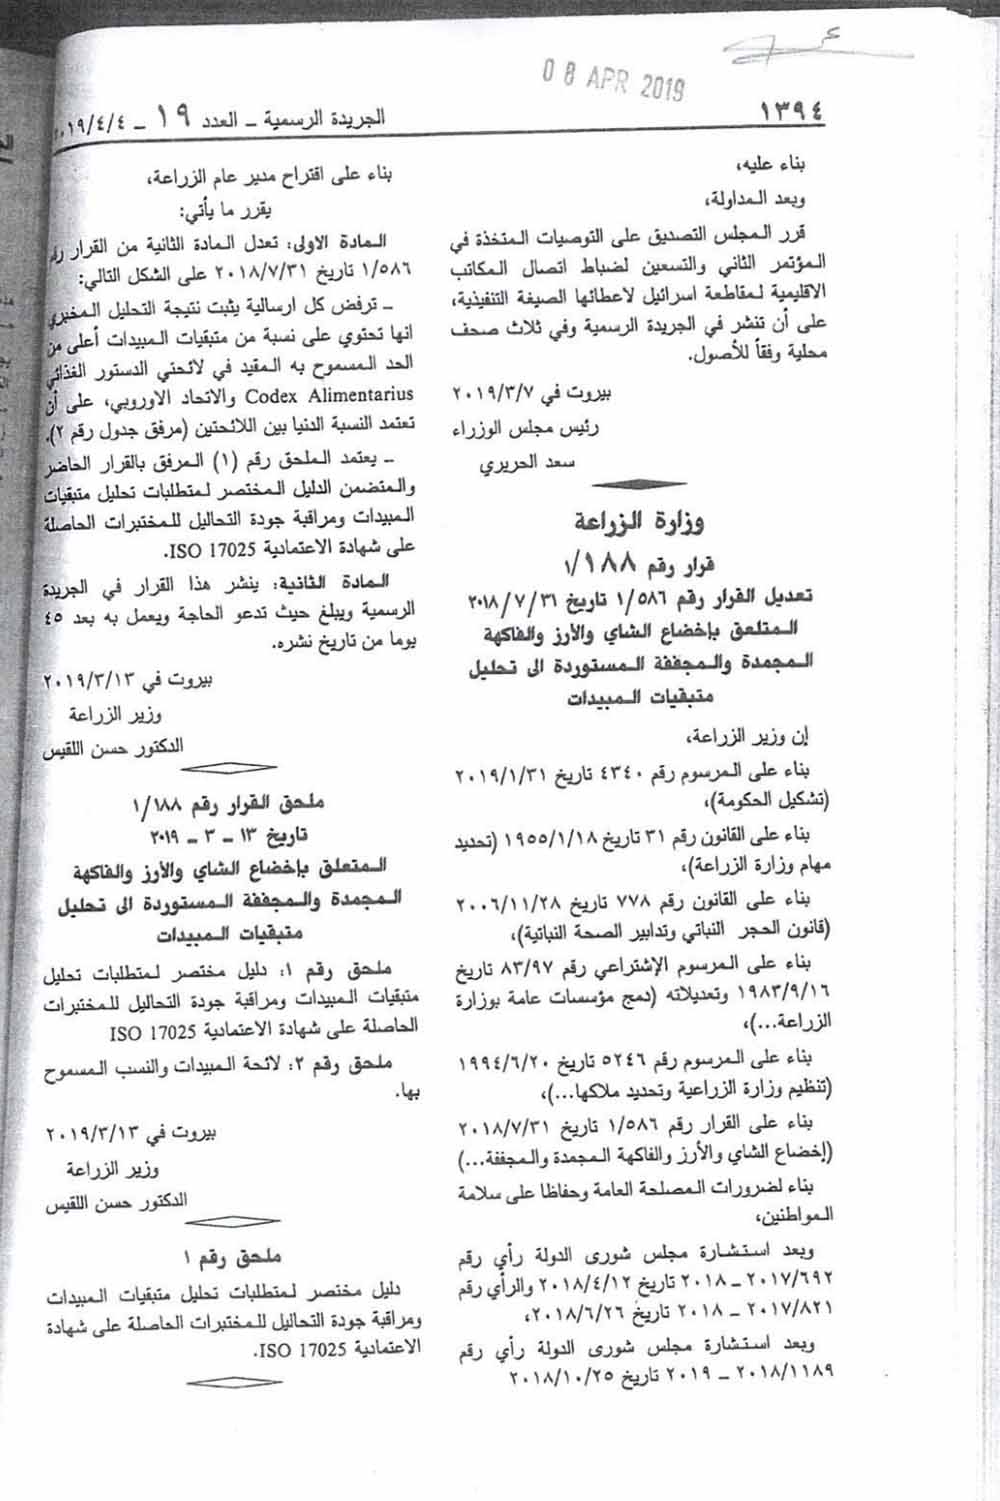 08 APR 2019
١٣٩٤
الجريدة الرسمية ـ العدد ١٩ ـ ٢٠١٩/٤/٤
بناء عليه،
وبعد المداولة،
قرر المجلس التصديق على التوصيات المتخذة في
المؤتمر الثاني والتسعين لضباط اتصال المكاتب
الاقليمية لمقاطعة اسرائيل لاعطائها الصيغة التنفيذية،
على أن تنشر في الجريدة الرسمية وفي ثلاث صحف
محلية وفقاً للأصول.
بيروت في ٢٠١٩/٣/٧
رئيس مجلس الوزراء
سعد الحريري
وزارة الزراعة
قرار رقم ١/١٨٨
تعديل القرار رقم ١/٥٨٦ تاريخ ٢٠١٨/٧/٣١
المتلعق بإخضاع الشاي والأرز والفاكهة
المجمدة والمجففة المستوردة الى تحليل
متبقيات المبيدات
إن وزير الزراعة،
بناء على المرسوم رقم ٤٣٤٠ تاريخ ٢٠١٩/١/٣١
(تشكيل الحكومة)،
بناء على القانون رقم ٣١ تاريخ ١٩٥٥/١/١٨ (تحديد
مهام وزارة الزراعة)،
بناء على القانون رقم ٧٧٨ تاريخ ٢٠٠٦/١١/٢٨
(قانون الحجر النباتي وتدابير الصحة النباتية)،
بناء على المرسوم الإشتراعي رقم ٨٣/٩٧ تاريخ
١٩٨٣/٩/١٦ وتعديلاته (دمج مؤسسات عامة بوزارة
الزراعة...)،
بناء على المرسوم رقم ٥٢٤٦ تاريخ ١٩٩٤/٦/٢٠
(تنظيم وزارة الزراعية وتحديد ملاكها...)،
بناء على القرار رقم ١/٥٨٦ تاريخ ٢٠١٨/٧/٣١
(إخضاع الشاي والأرز والفاكهة المجمدة والمجففة...)
بناء لضرورات المصلحة العامة وحفاظا على سلامة
المواطنين،
وبعد استشارة مجلس شورى الدولة رأي رقم
٢٠١٧/٦٩٢ ـ ٢٠١٨ تاريخ ٢٠١٨/٤/١٢ والرأي رقم
٢٠١٧/٨٢١ ـ ٢٠١٨ تاريخ ٢٠١٨/٦/٢٦،
وبعد استشارة مجلس شورى الدولة رأي رقم
٢٠١٨/١١٨٩ ـ ٢٠١٩ تاريخ ٢٠١٨/١٠/٢٥
بناء على اقتراح مدير عام الزراعة،
يقرر ما يأتي:
المادة الاولى: تعدل المادة الثانية من القرار رقم
١/٥٨٦ تاريخ ٢٠١٨/٧/٣١ على الشكل التالي:
ـ ترفض كل ارسالية يثبت نتيجة التحليل المخبري
انها تحتوي على نسبة من متبقيات المبيدات أعلى من
الحد المسموح به المقيد في لائحتي الدستور الغذائي
Codex Alimentarius والاتحاد الاوروبي، على أن
تعتمد النسبة الدنيا بين اللائحتين (مرفق جدول رقم ٢).
ـ يعتمد الملحق رقم (١) المرفق بالقرار الحاضر
والمتضمن الدليل المختصر لمتطلبات تحليل متبقيات
المبيدات ومراقبة جودة التحاليل للمختبرات الحاصلة
على شهادة الاعتمادية ISO 17025.
المادة الثانية: ينشر هذا القرار في الجريدة
الرسمية ويبلغ حيث تدعو الحاجة ويعمل به بعد ٤٥
يوما من تاريخ نشره.
بيروت في ٢٠١٩/٣/١٣
وزير الزراعة
الدكتور حسن اللقيس
ملحق القرار رقم ١/١٨٨
تاريخ ١٣ ـ ٣ ـ ٢٠١٩
المتعلق بإخضاع الشاي والأرز والفاكهة
المجمدة والمجففة المستوردة الى تحليل
متبقيات المبيدات
ملحق رقم ١: دليل مختصر لمتطلبات تحليل
متبقيات المبيدات ومراقبة جودة التحاليل للمختبرات
الحاصلة على شهادة الاعتمادية ISO 17025
ملحق رقم ٢: لائحة المبيدات والنسب المسموح
بها.
بيروت في ٢٠١٩/٣/١٣
وزير الزراعة
الدكتور حسن اللقيس
ملحق رقم ١
دليل مختصر لمتطلبات تحليل متبقيات المبيدات
ومراقبة جودة التحاليل للمختبرات الحاصلة على شهادة
الاعتمادية ISO 17025.